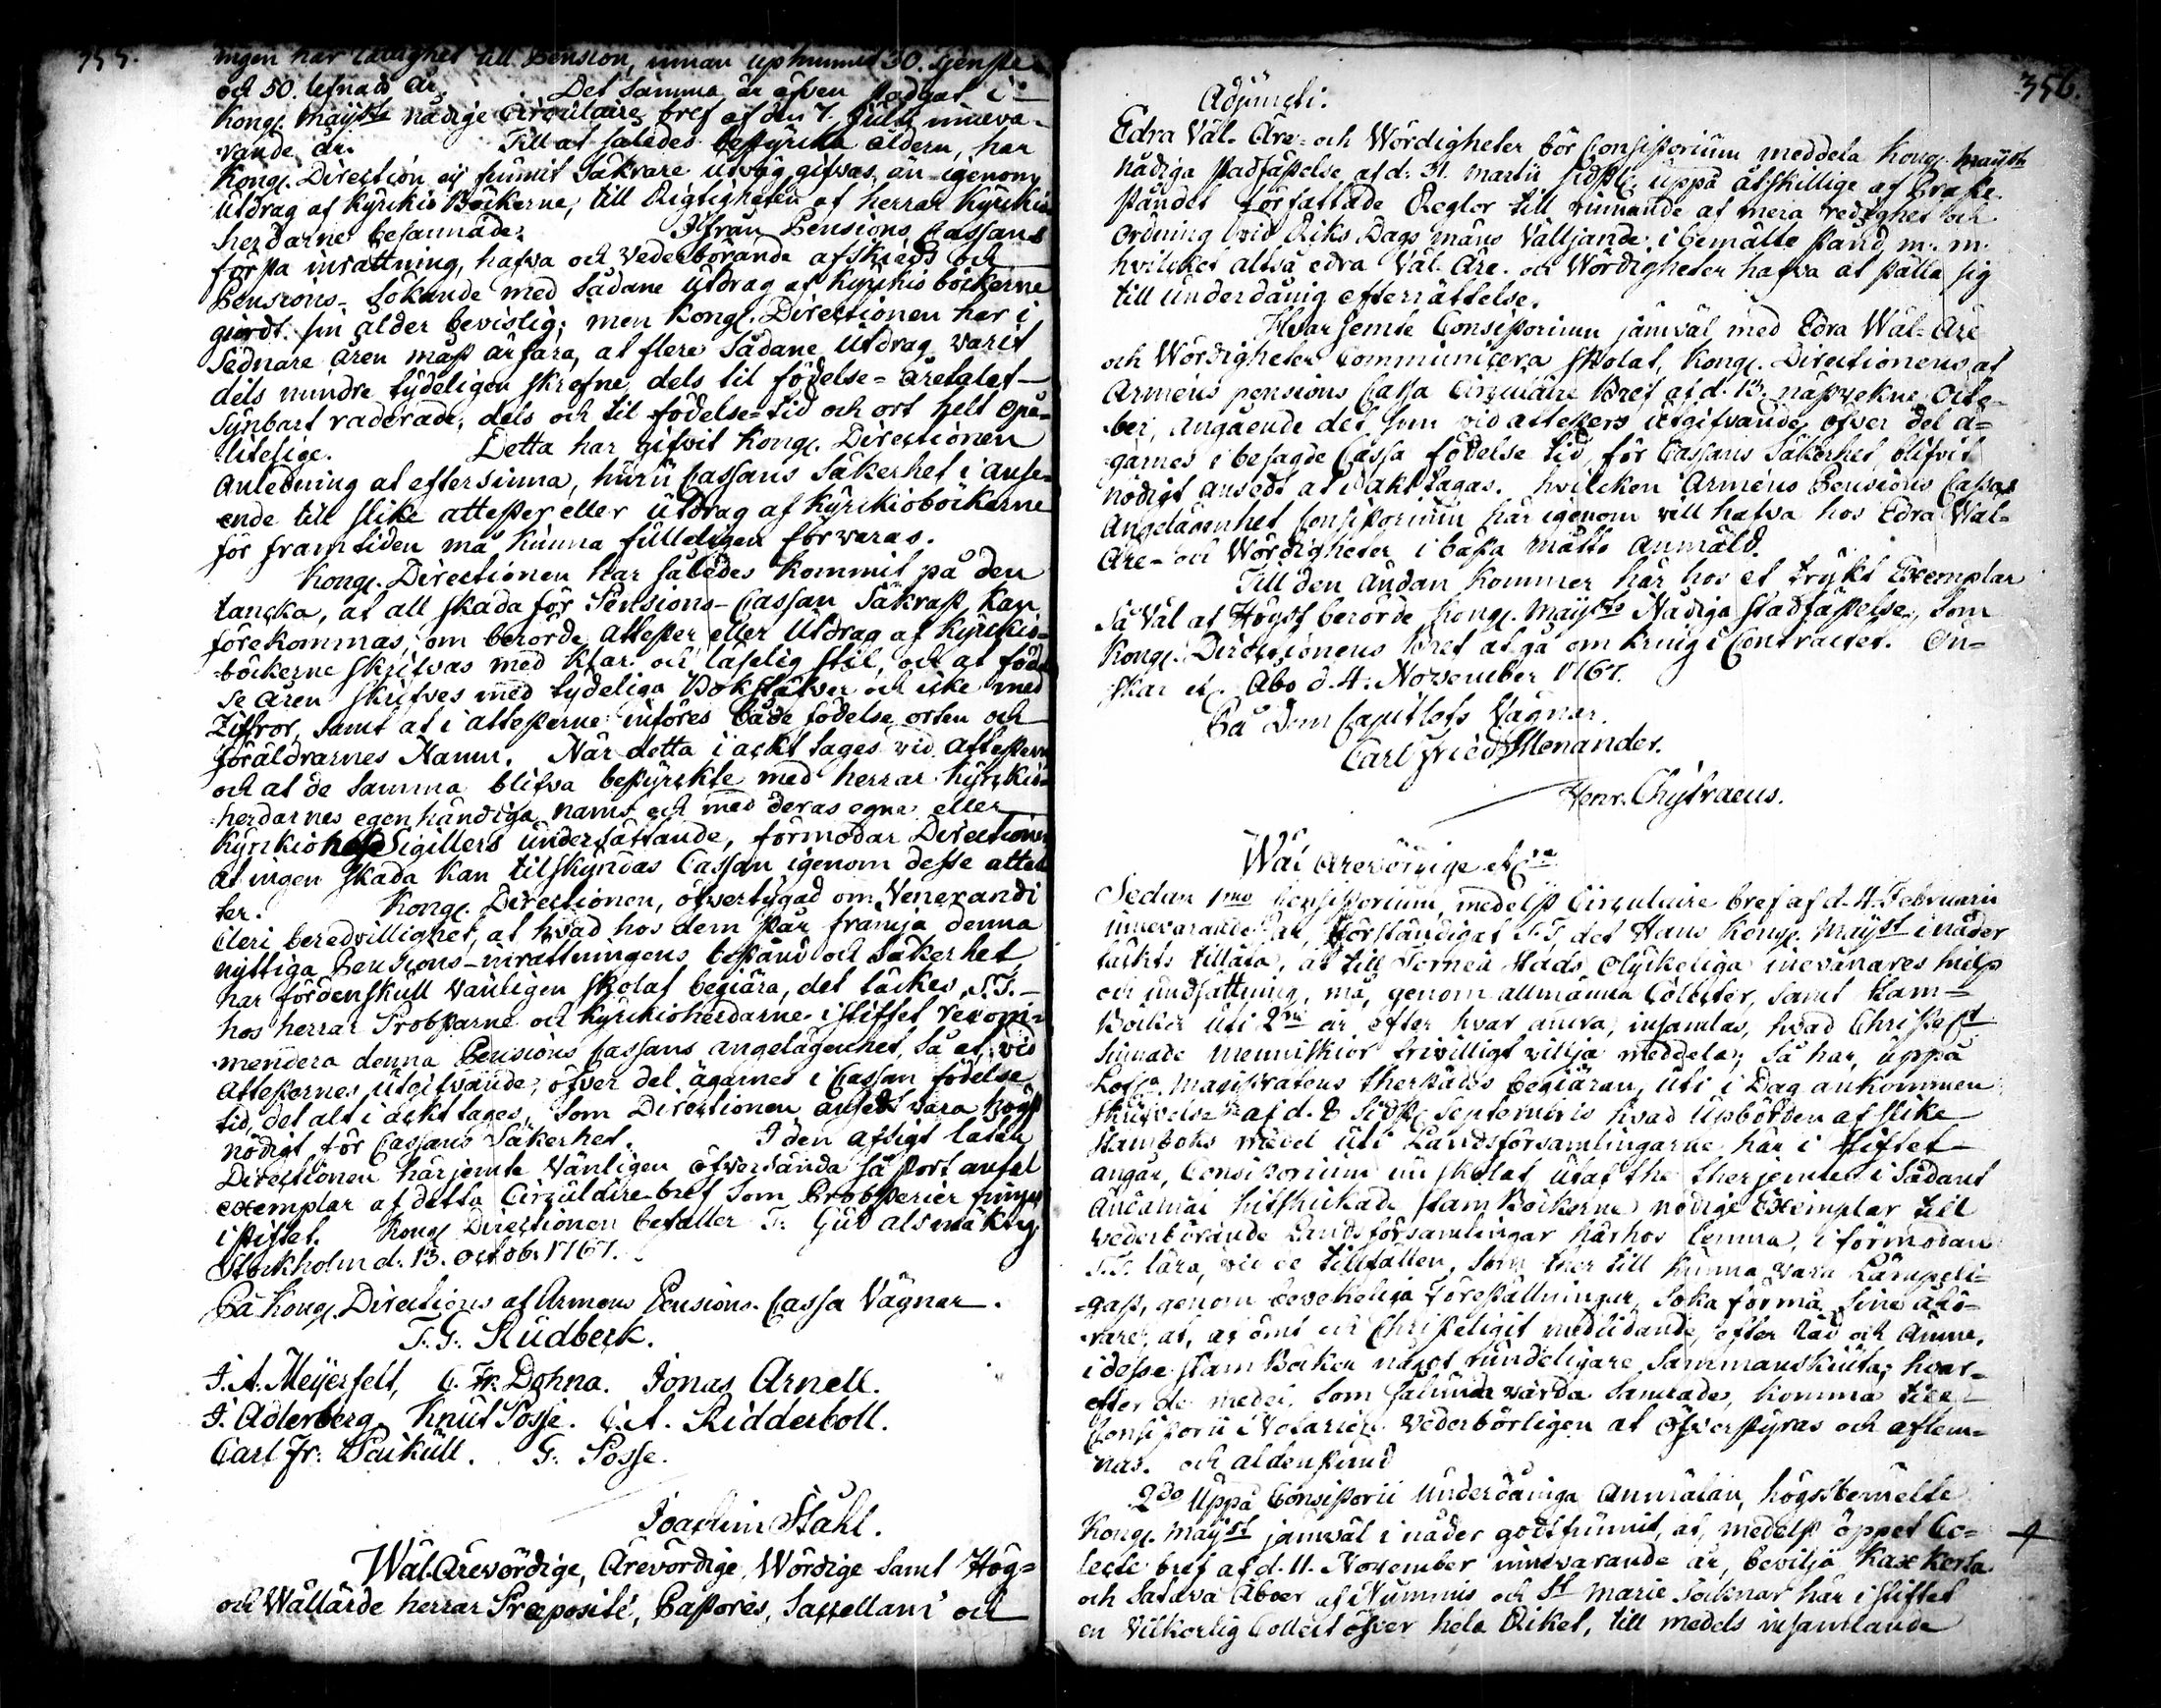 355.
ingen har rättighet till Pension, innan uphunnit 30. Tjenste
och 50. lefnads år. Det samma är äfven stadgat i
Kongl. Maÿsts nådige Circulaire bref af den 7. Julii inneva-
rande år. Till at således bestÿrka åldern, har
Kongl. Direction eÿ funnit säkrare utväg gifvas, än igenom
utdrag af KÿrkioBöckerne, till Rigtigheten af herrar Kÿrkio
herdarne besannade. Ifrån Pensions Cassans
första inrättning, hafva och vederbörande afskieds och
Pensions-sökande med sådane utdrag af Kÿrkioböckerne
giordt sin ålder bevislig; men Kongl. Directionen har i
sednare åren måst ärfara, at flere sådane utdrag varit
dels mindre tÿdeligen skrefne, dels til födelse-åretalet
sÿnbart raderade, dels och til födelse-tid och ort helt opå-
litelige. Detta har gifvit Kongl. Directionen
Anledning at eftersinna, huru Cassans säkerhet i anse-
ende till slike attester eller utdrag af Kÿrkioböckerne
för framtiden må kunna fulleligen förvaras.
Kongl. Directionen har således kommit på den
tancka, at all skada för Pensions-Cassan säkrast kan
förekommas, om berörde attester eller Utdrag af Kÿrkio-
böckerne skrifvas med klar och läselig stil, och at födel
se åren skrifves med tydeliga Bokstäfver och icke med
Ziffror, samt at i attesterne införes både födelse orten och
föräldrarnes Namn. När detta i ackt tages vid attesterne
och at de samma blifva bestÿrkte med herrar Kÿrkio-
herdarnes egenhändiga namn och med deras egne eller
Kÿrkio Sigillers undersättande, förmodar Directionen
at ingen skada kan tilskÿndas Cassan igenom desse attes
ter. Kongl. Directionen, öfvertÿgad om Venerandi
Cleri beredvillighet, at hvad hos dem står främja denna
nÿttiga Pensions-inrättningens bestånd och säkerhet
har fördenskull vänligen skolat begiära, det täckes T.T.
hos herrar Probstarne och Kÿrkioherdarne i stiftet recom-
mendera denna Pensions Cassans angelägenhet, så at vid
Attesternes utgifvande, öfver del ägarnes i Cassan födelse
tid, det alt i ackt tages, som Directionen ansedt vara högst
nödigt för Cassans säkerhet. I den afsigt låter
Directionen härjemte vänligen öfversända så stort antal
exemplar af detta Circulaire bref som Probsterier finnes
i stiftet. Kongl Directionen befaller T. Gud alsmäktig
Stockholm d. 13. octob. 1767.
På Kongl. Directions af Armens Pensions Cassa Vägnar.
T. G. Rudbeck.
J. A. Meÿerfelt, C. Fr. Dohna. Jonas Arnell.
J. Adlerberg. Knut Posse. C. A. Ridderboll.
Carl Fr: Paikull. G. Posse.
Joachim Stahl.
Wäl-Ärevördige, Ärevördige, Wördige samt Hög-
och Wällärde herrar Præposité, Pastores, Sacellani och
356.
Adjuncti.
Edra Väl- Äre- och Wördigheter bör Consistorium meddela Kongl. Maÿsts
nådiga stadfästelse af d. 31. martii sidstl. uppå åtskillige af Preste
ståndet författade Reglor till vinnande af mera redighet och
ordning vid Riks Dags mäns Valljande i bemälte stand, m. m.
hvilcket altså edra Väl- Äre- och Wördigheter hafva at ställa sig
till underdånig efterrättelse.
Hvarjemte Consistorium jämväl med Edra Wäl- Äre
och Wördigheter Communicera skolat, Kongl. Directionens af
Armens pensions Cassa Circulaire Bref af d. 13. nästvekne Octo-
ber, angående det, som vid attesters utgifvande öfver del ä-
garnes i besagde Cassa födelse tid, för Cassans säkerhet, blifvit
nödigt ansedt at i akt tagas. hvilcken Armens Pensions Cassas
Angelägenhet Consistorium här igenom vill hafva hos Edra Wäl-
Äre- och Wördigheter i bästa måtto anmäld.
Till den ändan kommer här hos et trÿkt Exemplar
så väl af Högst berörde Kongl. Maÿsts Nådiga stadfästelse, som
Kongl. Directionens bref at gå omkring i Contractet. Ön-
skar etc. Åbo d. 4. November 1767.
På Dom Capitlets Vägnar.
Carl Fried Menander.
Henr. Chÿtraeus.
Wäl Ärevördige etc
Sedan 1mo Consistorium, medelst Circulaire bref af d. 4. Februarii
innevarande år, förständigat T.T. det Hans Kongl. Maÿst i nåder
täckts tillåta, at till Torneå Stads olÿckeliga inevånares hielp
och undsättning, må, genom allmänna Collecter, samt stam-
Böcker uti 2ne år efter hvar annra, insamlas, hvad Christel.
sinnade menniskior frivilligt villja meddela; så har, uppå
Magistratens therstädes begiäran, uti i Dag ankommen
skrifvelse af d. 8 sidstl. Septembris hvad Upbörden af slike
stamboks medel uti Landsförsamlingarne här i stiftet
angår, Consistorium nu skolat utaf the therjemte i sådant
ändamål hitskickade stam Böckerne nödige Exemplar till
vederbörande Landsförsamlingar härhos lemna, i förmodan
T.T. lära, vid de tillfällen, som ther till kunna vara lämpeli-
gast, genom bevekeliga föreställningar, söka förmå sine åhö-
rare, at, af ömt och Christeligit medlidande, efter råd och ämne,
i desse stam Böcker något rundeligare sammanskiuta; hvar-
efter de medel, som sålunda värda samlade, komma till
Consistorii Notarien vederbörligen at öfverstÿras och aflem-
nas. och aldenstund
2do Uppå Consistorii underdåniga Anmälan, högstbemelte
Kongl. Maÿst jämväl i nåder godtfunnit, at, medelst öppet Co-
lecte bref af d. 11. November innevarande år, bevilja Kaxkerta
och Satava Åboer af Nummis och St Marie Socknar här i stiftet
en Vilkorlig Collect öfver hela Riket, till medels insamlande